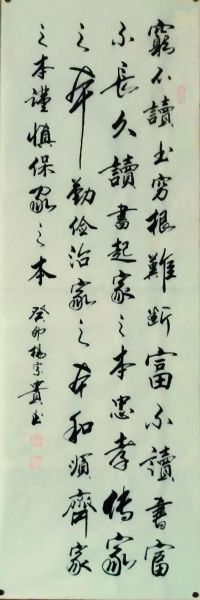 窮不讀书穷根難断富不讀書富
不長久讀書起家之本忠孝传家
之本勤俭治家之本和順齊家
之本谨慎保家之本
癸卯楊宗贵书